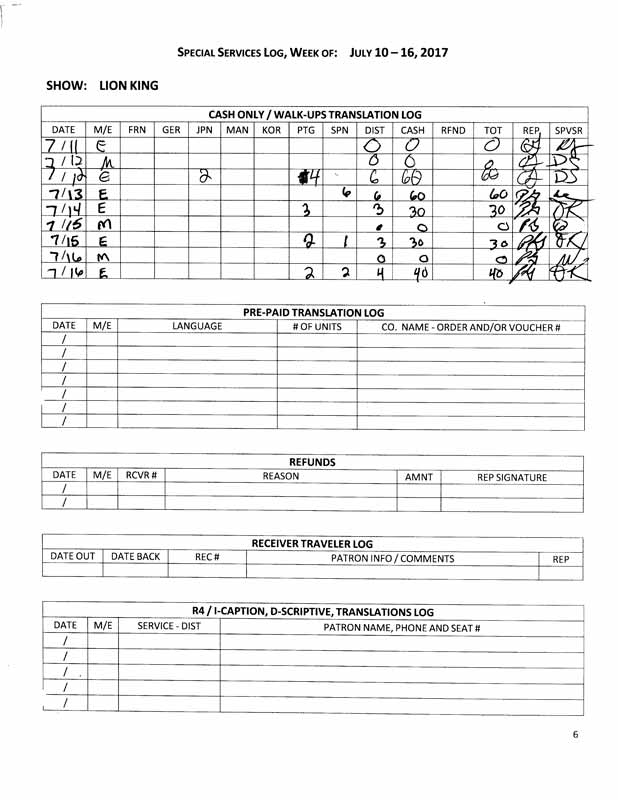 SPECIAL SERVICES LOG, WEEK OF: JULY 10 – 16, 2017
SHOW: LION KING
CASH ONLY / WALK-UPS TRANSLATION LOG
DATE M/E FRN GER JPN MAN KOR PTG SPN DIST CASH RFND TOT REP SPVSR
7/11 E 0 0 0
7/12 M 0 0 0 DS
7/12 E 2 4 6 60 60 DS
7/13 E 6 6 60 60
7/14 E 3 3 30 30 OK
7/15 M 0 0
7/15 E 2 1 3 30 30 OK
7/16 M 0 0 0
7/16 E 2 2 4 40 40 OK
PRE-PAID TRANSLATION LOG
DATE M/E LANGUAGE # OF UNITS CO. NAME - ORDER AND/OR VOUCHER #
/
/
/
/
/
/
/
REFUNDS
DATE M/E RCVR # REASON AMNT REP SIGNATURE
/
/
RECEIVER TRAVELER LOG
DATE OUT DATE BACK REC # PATRON INFO / COMMENTS REP
R4 / I-CAPTION, D-SCRIPTIVE, TRANSLATIONS LOG
DATE M/E SERVICE - DIST PATRON NAME, PHONE AND SEAT #
/
/
/
/
/
6